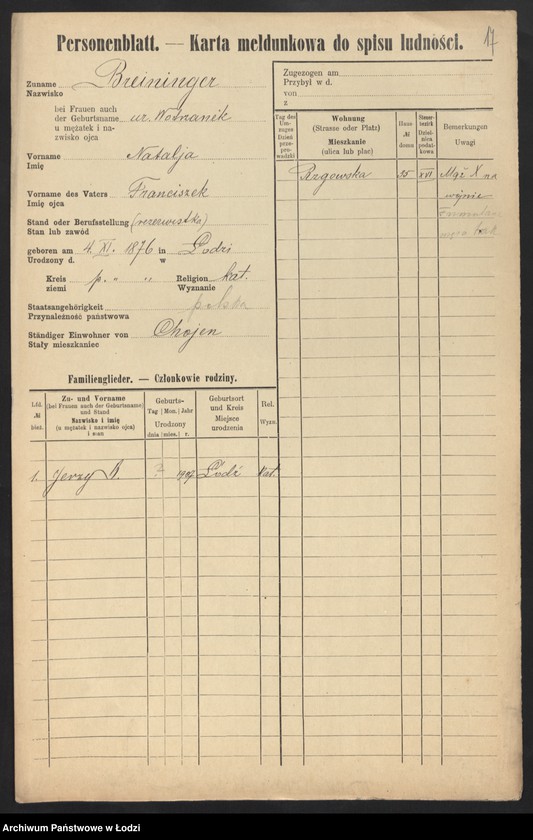 17
Personenblatt. — Karta meldunkowa do spisu ludności.
Zuname
Nazwisko
Breininger
bei Frauen auch
der Geburtsname
u mężatek i na-
zwisko ojca
ur. Woźnanik
Vorname
Imię
Natalja
Vorname des Vaters
Imię ojca
Franciszek
Stand oder Berufsstellung
Stan lub zawód
(rezerwistka)
geboren am 4. XI. 1876 in Łodzi
Urodzony d. w
Kreis
ziemi
p. " "
Religion
Wyznanie
kat.
Staatsangehörigkeit
Przynależność państwowa
polska
Ständiger Einwohner von
Stały mieszkaniec
Chojen
Zugezogen am
Przybył w d.
von
z
Tag des Um-zuges
Dzień prze-pro-wadzki
Wohnung
(Strasse oder Platz)
Mieszkanie
(ulica lub plac)
Haus
№
domu
Bemerkungen
Uwagi
Rzgowska 35 XVI Mąż X na
wojnie
Familienglieder. — Członkowie rodziny.
Lfd.
№
bież.
Zu- und Vorname
(bei Frauen auch der Geburtsname)
und Stand
Nazwisko i imię
(u mężatek i nazwisko ojca)
i stan
Geburts-
Tag Mon. Jahr
Urodzony
dnia mies. r.
Geburtsort
und Kreis
Miejsce
urodzenia
Rel.
Wyzn.
1. Jerzy B. ? 1907 Łódź kat.
Archiwum Państwowe w Łodzi